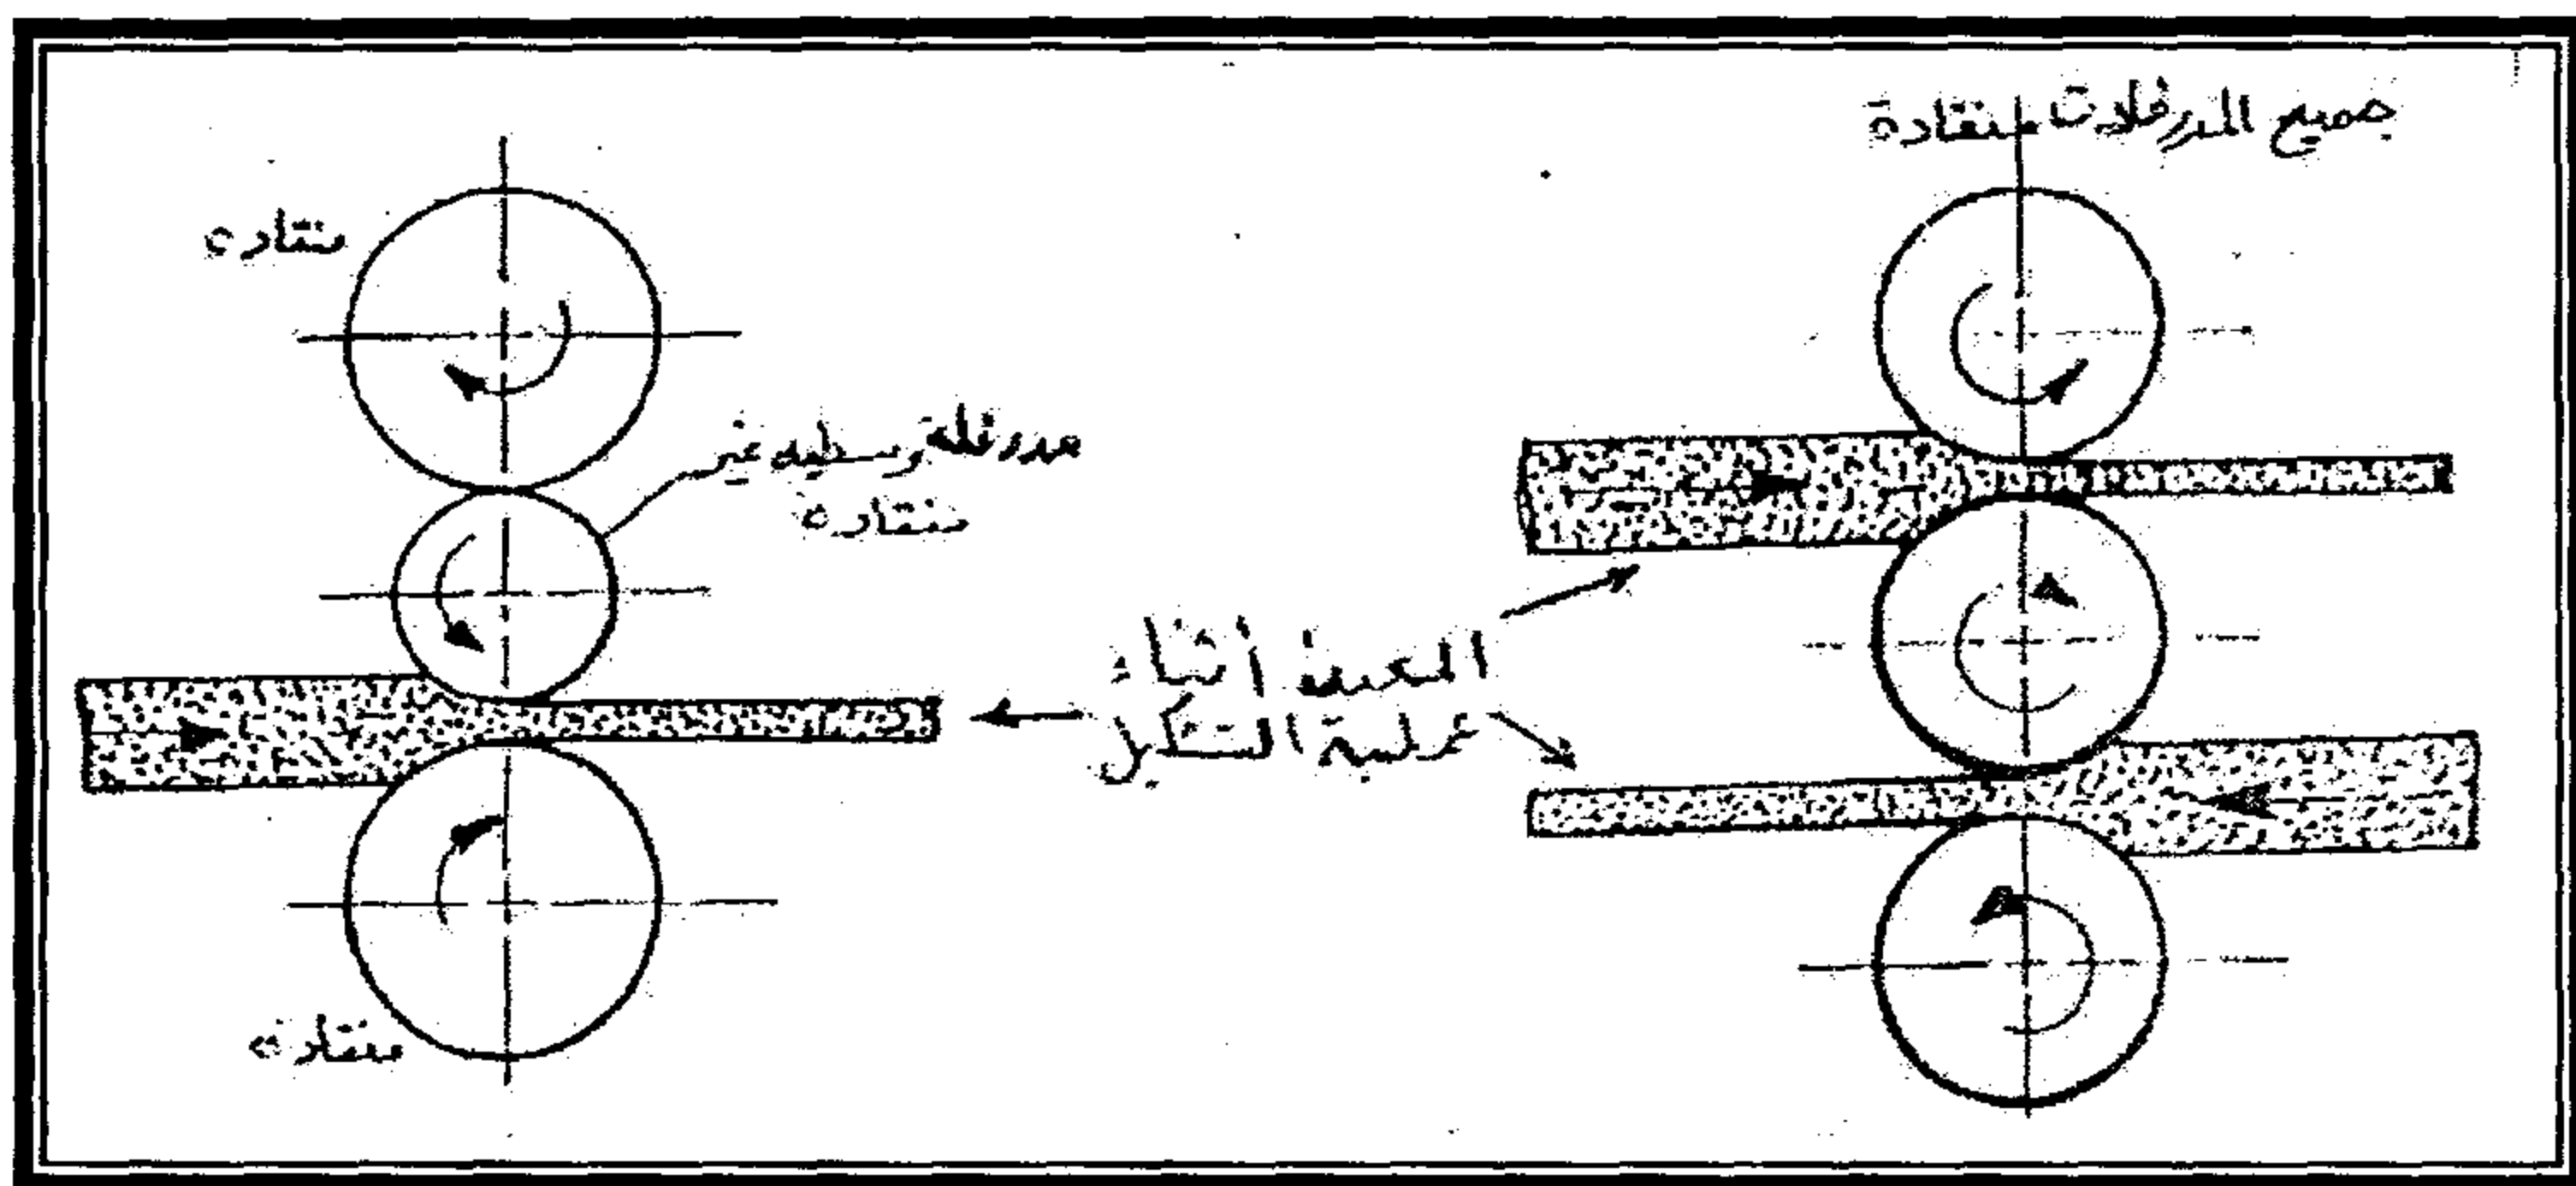 جميع المدرفلات منقادة
منقاده
مدرفلة وسطيه غير
منقاده
المعدن أثناء
عملية التشكيل
منقاده